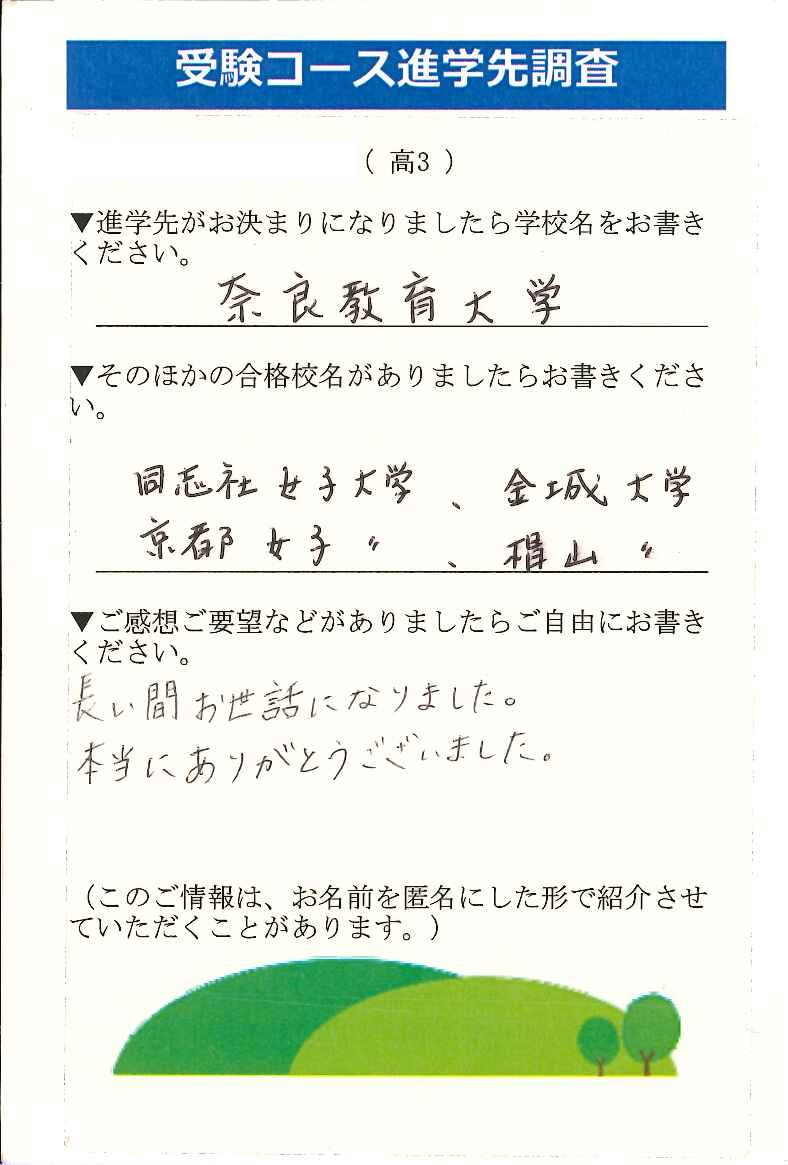 受験コース進学先調査
（ 高3 ）
▼進学先がお決まりになりましたら学校名をお書き
ください。
奈良教育大学
▼そのほかの合格校名がありましたらお書きくださ
い。
同志社女子大学、金城大学
京都女子〃、椙山〃
▼ご感想ご要望などがありましたらご自由にお書き
ください。
長い間お世話になりました。
本当にありがとうございました。
（このご情報は、お名前を匿名にした形で紹介させ
ていただくことがあります。）